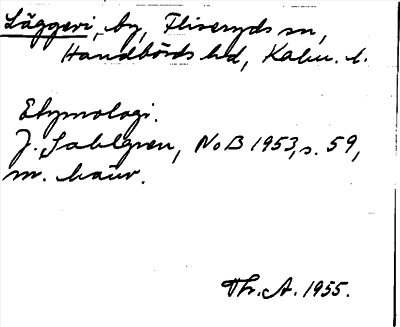 Läggevi, by, Fliseryds sn,
Handbörds hd, Kalm. l.
Etymologi.
J. Sahlgren, NoB 1953, s. 59,
m. hänv.
Th. A. 1955.